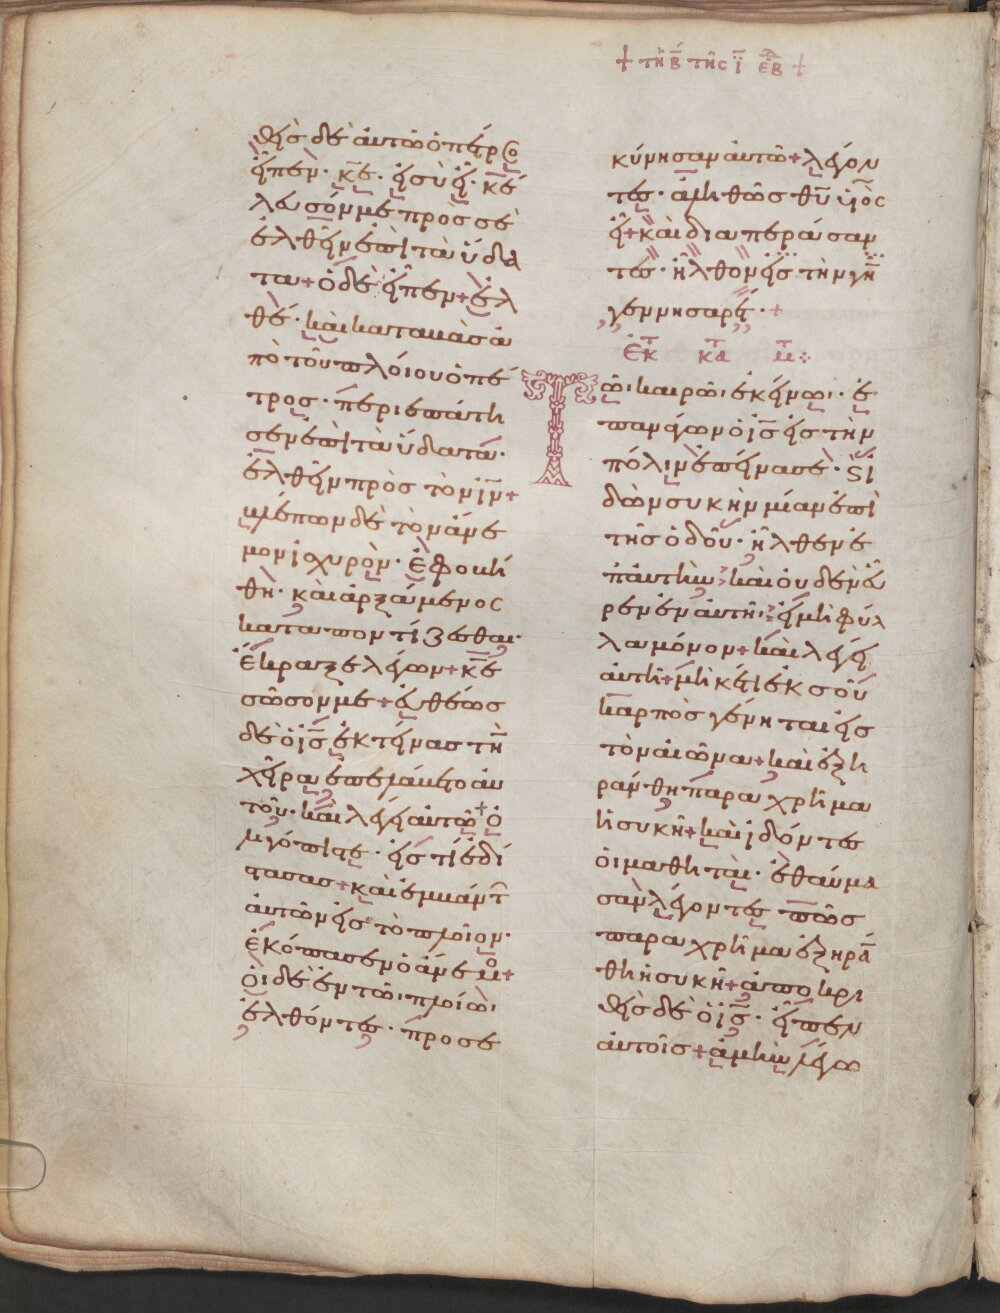 + τῆ β̅ τῆς ι̅ ἑβ +
θεὶς δὲ ἀυτῶ ὁ πέτρο
εἶπεν· κ̅ε· εἰ σὺ εἶ· κέ
λευσόν με πρὸς σὲ
ἐλθεῖν ἐπὶ τὰ ὕδα
τα + ὁ δὲ εἶπεν + ἐλ
θὲ· καὶ καταβὰς ἀ
πὸ τοῦ πλοίου ὁ πέ
τρος· περιεπάτη
σεν ἐπὶ τὰ ὕδατα·
ἐλθεῖν πρὸς τὸν ι̅ν̅ +
βλέπων δὲ τὸν ἄνε
μον ἰσχυρὸν· ἐφοβή
θη· καὶ ἀρξάμενος
καταποντίζεσθαι·
ἔκραξε λέγων + κ̅ε
σῶσον με + ἐυθέως
δὲ ὁ ι̅ς̅ ἐκτείνας τὴν
χεῖρα ἐπελάβετο ἀυ
τοῦ· καὶ λέγει ἀυτῶ + ὀ
λιγόπιστε· εἰς τί ἐδί
στασας + καὶ ἐμβάντ
ἀυτῶν εἰς τὸ πλοῖον·
ἐκόπασεν ὁ ἄνεμο +
ὁι δὲ ἐν τῶι πλοίωι
ἐλθόντες· προσε
κύνησαν ἀυτῶ + λέγον
τες· ἀληθῶς θ̅υ̅ υἱὸς
εἶ + καὶ διαπεράσαν
τες· ἦλθον εἰς τὴν γῆν
γεννησαρέτ· +
Ἐκ τ κα τ μ τ :·
Τῶι καιρῶι ἐκείνωι· ἐ
παναγων ὁ ι̅ς̅ εἰς τὴν
πόλιν ἐπείνασε· ϗ ἰ
δὼν συκὴν μίαν ἐπὶ
τῆς ὁδοῦ· ἦλθεν ἐ
π' ἀυτὴν καὶ ὀυδὲν εὗ
ρεν ἐν ἀυτῆ· εἰ μὴ φύλ
λα μόνον + καὶ λέγει
ἀυτῆ + μὴ κέτι ἐκ σοῦ
καρπὸς γένηται εἰς
τὸν αἰῶνα + καὶ ἐξη
ράνθη παρα χρῆμα
ἡ συκῆ + καὶ ἰδόντες
ὁι μαθηταὶ· ἐθαύμα
σαν λέγοντες πῶς
παρα χρῆμα ἐξηρά
θη ἡ συκῆ + ἀποκρι
θεὶς δὲ ὁ ι̅ς̅· εἶπεν
ἀυτοῖς + ἀμὴν λέγω